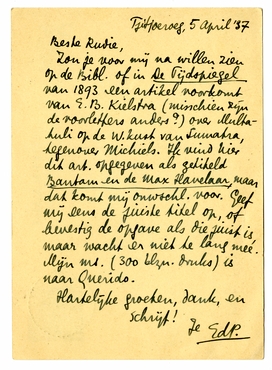 Tjitjoeroeg, 5 April '37
Beste Rudie,
Zou je voor mij na willen zien
op de Bibl. of in De Tijdspiegel
van 1893 een artikel voorkomt
van E.B. Kielstra (misschien zijn
de voorletters anders?) over Multa-
tuli op de W.kust van Sumatra,
tegenover Michiels. Ik vind hier
dit art. opgegeven als getiteld
Bantam en de Max Havelaar, maar
dat komt mij onwsch.l. voor. Geef
mij eens de juiste titel op, of
bevestig de opgave als die juist is
maar wacht er niet te lang meê.
Mijn ms. (300 blzn. druks) is
naar Querido.
Hartelijke groeten, dank, en
schrijf!
Je EdP.